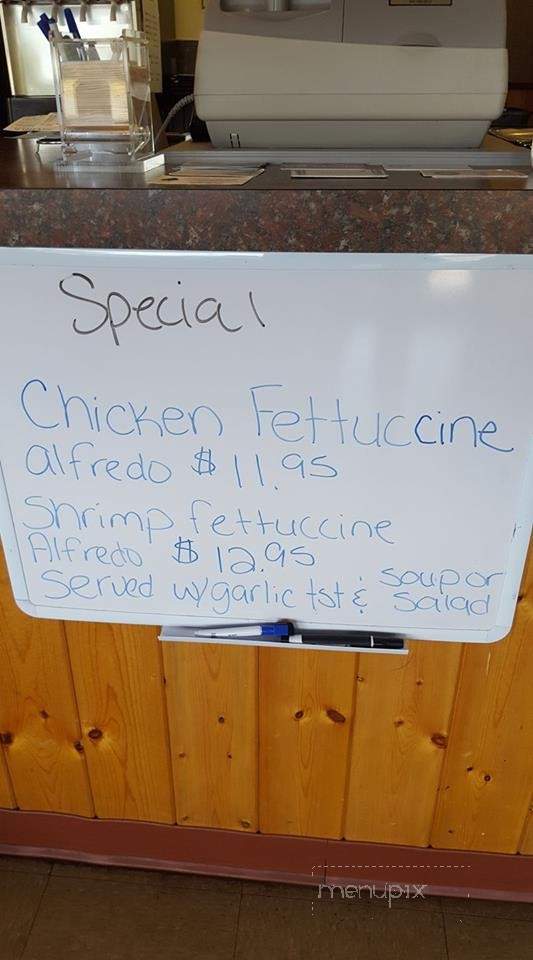 Special
Chicken Fettuccine
alfredo $11.95
Shrimp fettuccine
Alfredo $12.95
Served w/garlic tst & soup or
salad
menupix